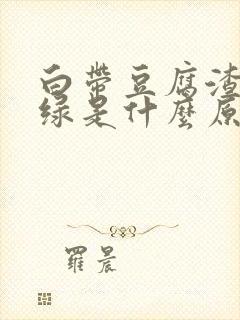 白带豆腐渣
绿是什麼原
羅晨